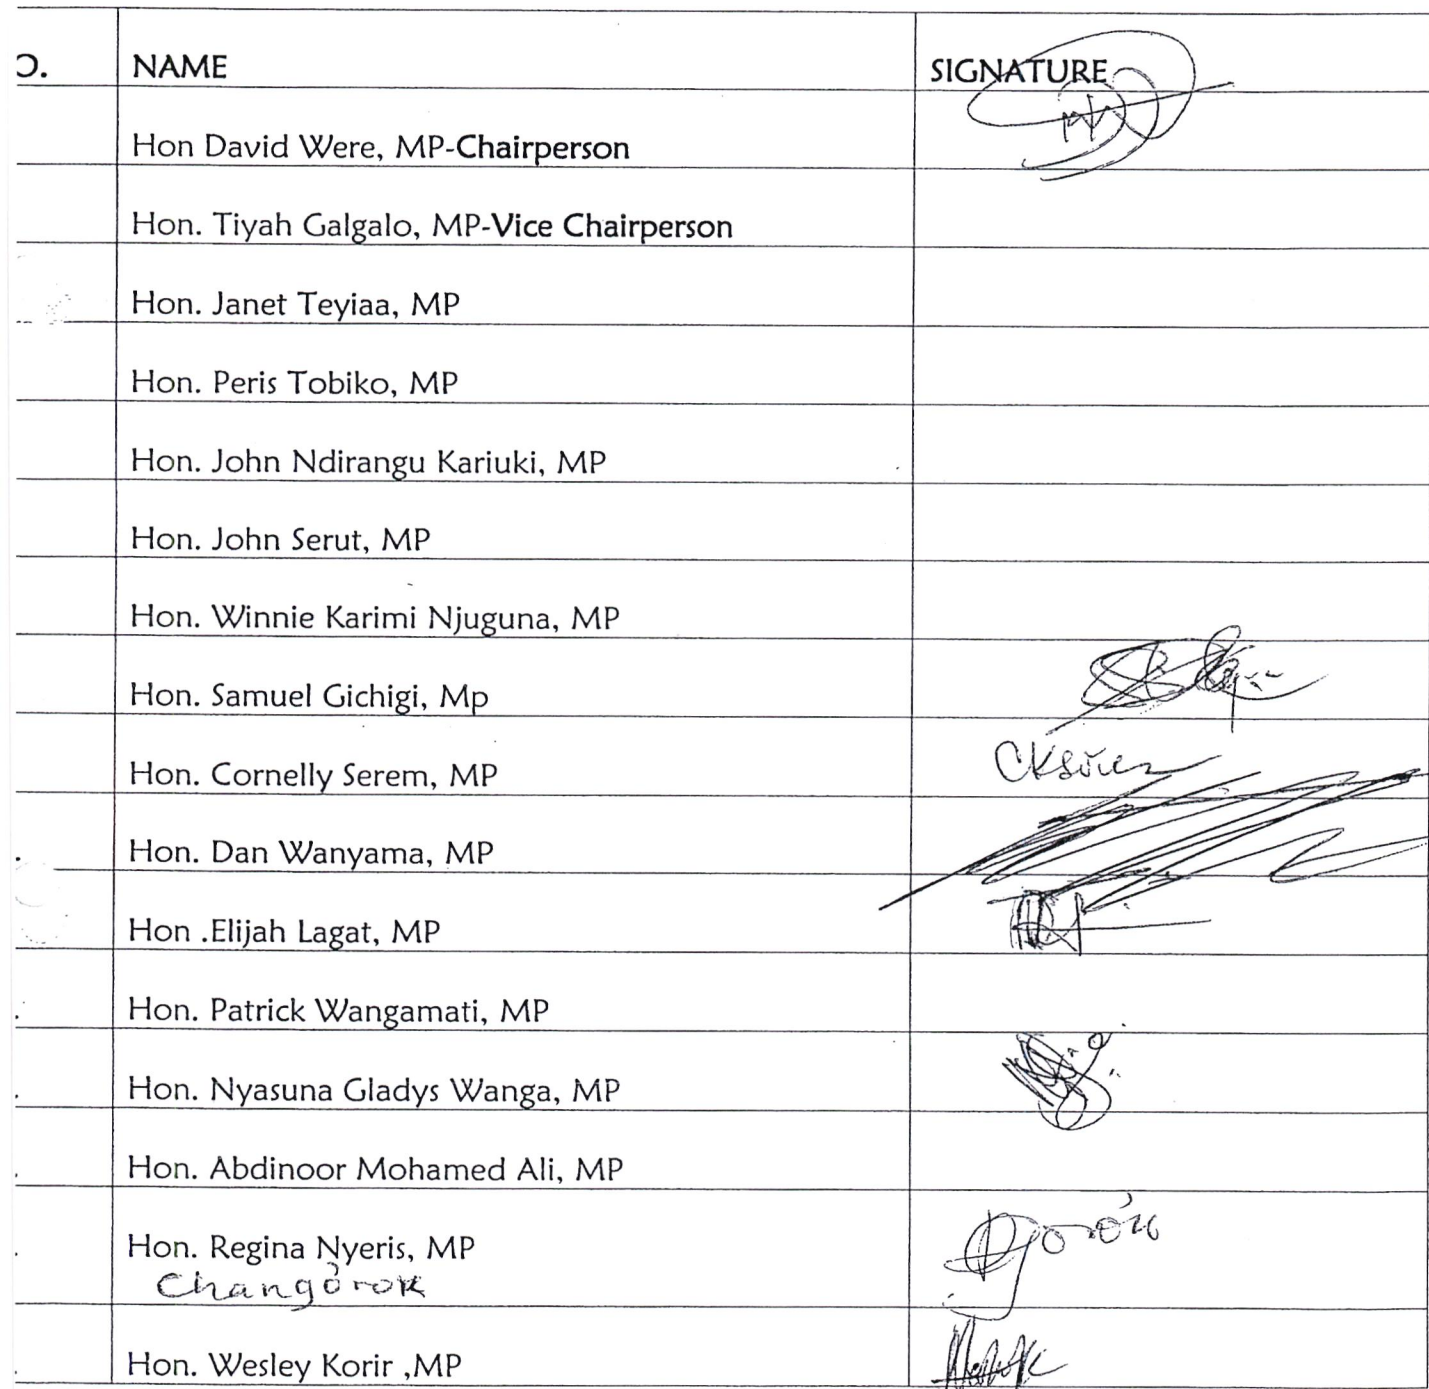 O. NAME SIGNATURE
Hon David Were, MP-Chairperson
Hon. Tiyah Galgalo, MP-Vice Chairperson
Hon. Janet Teyiaa, MP
Hon. Peris Tobiko, MP
Hon. John Ndirangu Kariuki, MP
Hon. John Serut, MP
Hon. Winnie Karimi Njuguna, MP
Hon. Samuel Gichigi, Mp
Hon. Cornelly Serem, MP
Hon. Dan Wanyama, MP
Hon .Elijah Lagat, MP
Hon. Patrick Wangamati, MP
Hon. Nyasuna Gladys Wanga, MP
Hon. Abdinoor Mohamed Ali, MP
Hon. Regina Nyeris, MP
Changorok
Hon. Wesley Korir ,MP